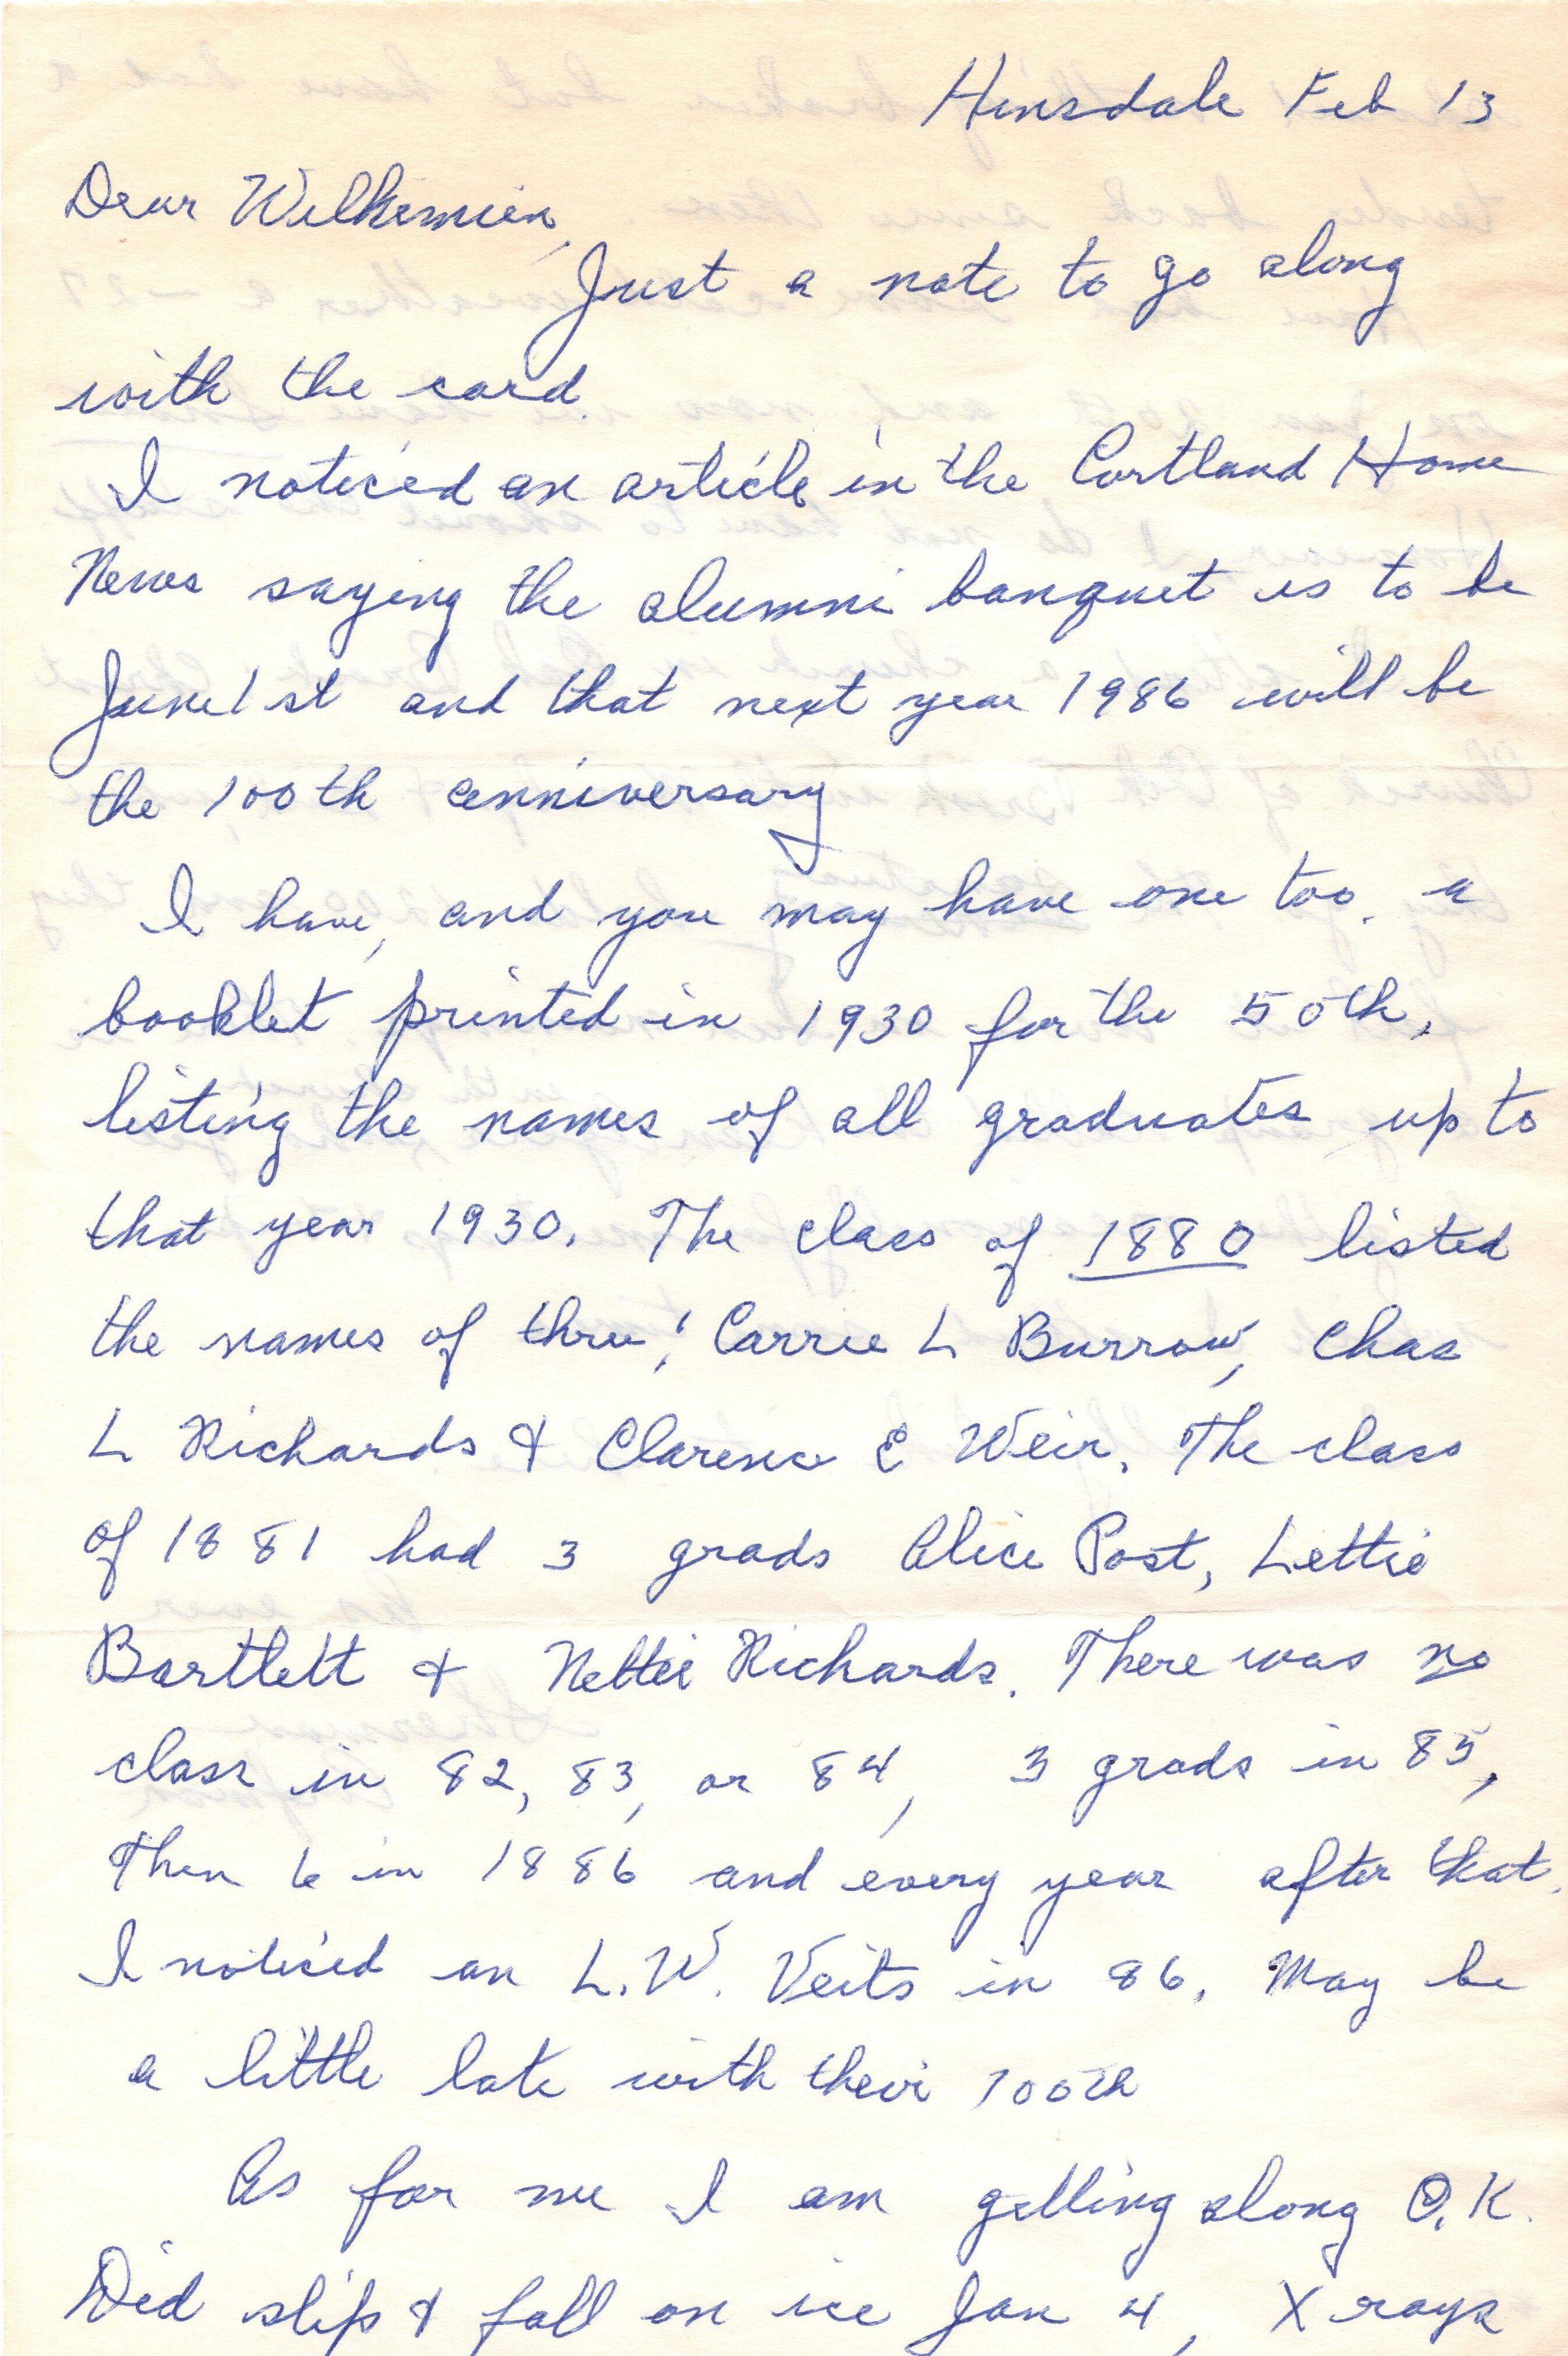 Hinsdale Feb 13
Dear Wilhemien,
Just a note to go along
with the card.
I noticed an article in the Cortland Home
News saying the alumni banquet is to be
June 1st and that next year 1986 will be
the 100th anniversary
I have, and you may have one too, a
booklet printed in 1930 for the 50th,
listing the names of all graduates up to
that year 1930. The class of 1880 listed
the names of three! Carrie L Burrow, Chas
L Richards & Clarence E Weir. The class
of 1881 had 3 grads Alice Post, Lettie
Bartlett & Nettie Richards. There was no
class in 82, 83, or 84, 3 grads in 85,
Then 6 in 1886 and every year after that.
I noticed an L.W. Veits in 86. May be
a little late with their 100th
As for me I am getting along O.K.
Did slip & fall on ice Jan 4, X rays